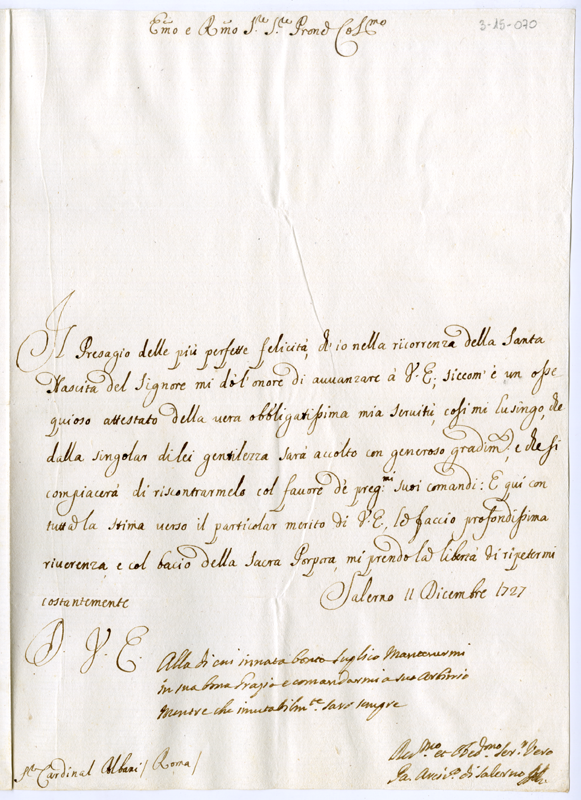 Emo e Rmo Sre Sre Prone Colmo
3-15-070
Il Presagio delle più perfette felicità, ch'io nella ricorrenza della Santa
Nascita del Signore mi dò l'onore di avvanzare à V. E., siccom' è un osse
quioso attestato della vera obbligatissima mia servitù, così mi lusingo, che
dalla singolar di lei gentilezza sarà accolto con generoso gradimto, e che si
compiacerà di riscontrarmelo col favore dè pregmi suoi comandi: E qui con
tutta la stima verso il particolar merito di V. E., le faccio profondissima
riverenza, e col bacio della Sacra Porpora, mi prendo la libertà di ripetermi
costantemente
Salerno 11 Dicembre 1727
D. V. E.
Alla di cui innata bontà suplico mantenermi
in sua bona Grazia e comandarmi a suo arbitrio
mentre che imutabilmte sarò sempre
Sr Cardinal Albani / Roma /
Devmo et Obedmo Serr Vero
di Salerno